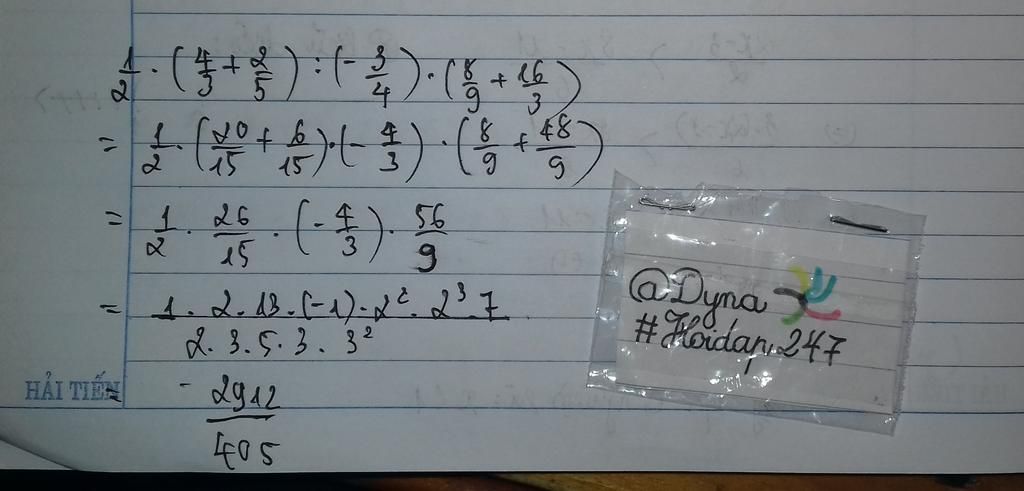 1/2 . (4/3 + 2/5) : (- 3/4) . (8/9 + 16/3)
= 1/2 . (20/15 + 6/15) . (- 4/3) . (8/9 + 48/9)
= 1/2 . 26/15 . (- 4/3) . 56/9
= 1 . 2 . 13 . (-1) . 2² . 2³ . 7 / 2 . 3 . 5 . 3 . 3²
= - 2912/405
HẢI TIẾN
@Dyna
#Hoidap247